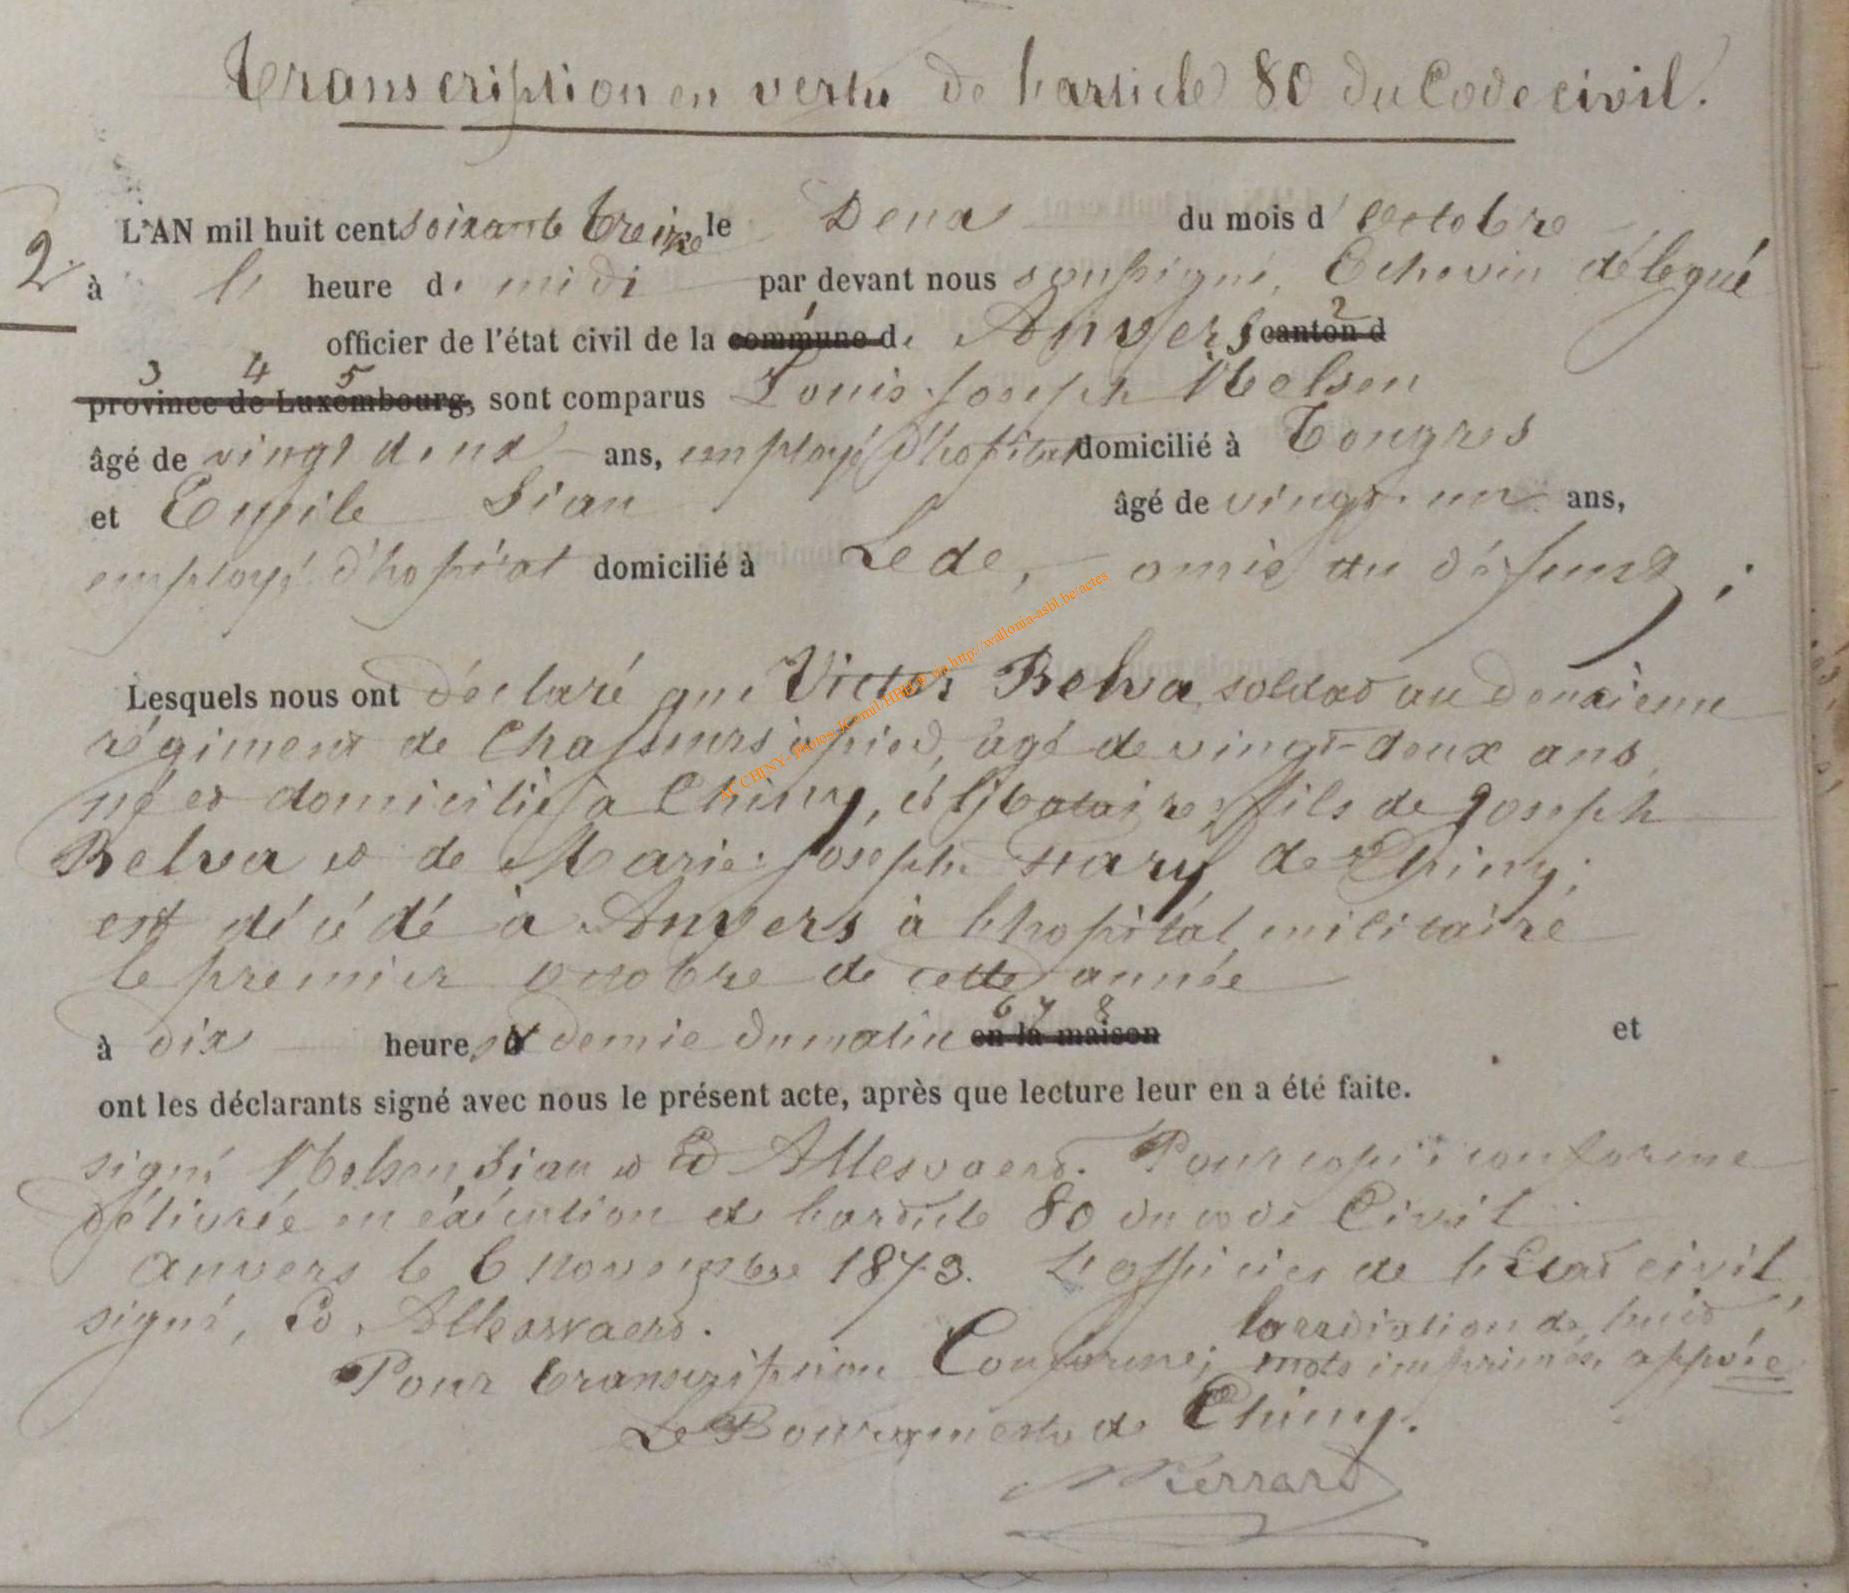 Transcription en vertu de l'article 80 du Code civil.
2.
L'AN mil huit cent soixante treize le Deux du mois d'octobre
à l' heure de midi par devant nous soussigné, Echevin délégué
officier de l'état civil de la commune de Anvers canton d
1 2
province de Luxembourg, sont comparus Louis Joseph Melsen
3 4 5
âgé de vingt deux ans, employé d'hopital domicilié à Tongres
et Emile Sian âgé de vingt-un ans,
employé d'hopital domicilié à Lede, amis du défunt;
Lesquels nous ont déclaré que Victor Belva, soldat au deuxième
régiment de Chasseurs à pied, âgé de vingt-deux ans,
né et domicilié à Chiny, célibataire, fils de Joseph
Belva et de Marie-Joseph de Chiny;
est décédé à Anvers à l'hopital militaire
le premier octobre de cette année
à dix heures et demie du matin en la maison et
6 7 8
ont les déclarants signé avec nous le présent acte, après que lecture leur en a été faite.
signé Melsen, Sian et Ed. Pour copie conforme
délivrée en exécution de l'article 80 du code Civil
Anvers le 6 novembre 1873. L'officier de l'Etat civil,
signé, Ed.
la radiation de huit
Pour transcription Conforme; mots imprimés, appvée
Le Bourgmestre de Chiny.
AC CHINY - Photos: via http://wallonia-asbl.be/actes